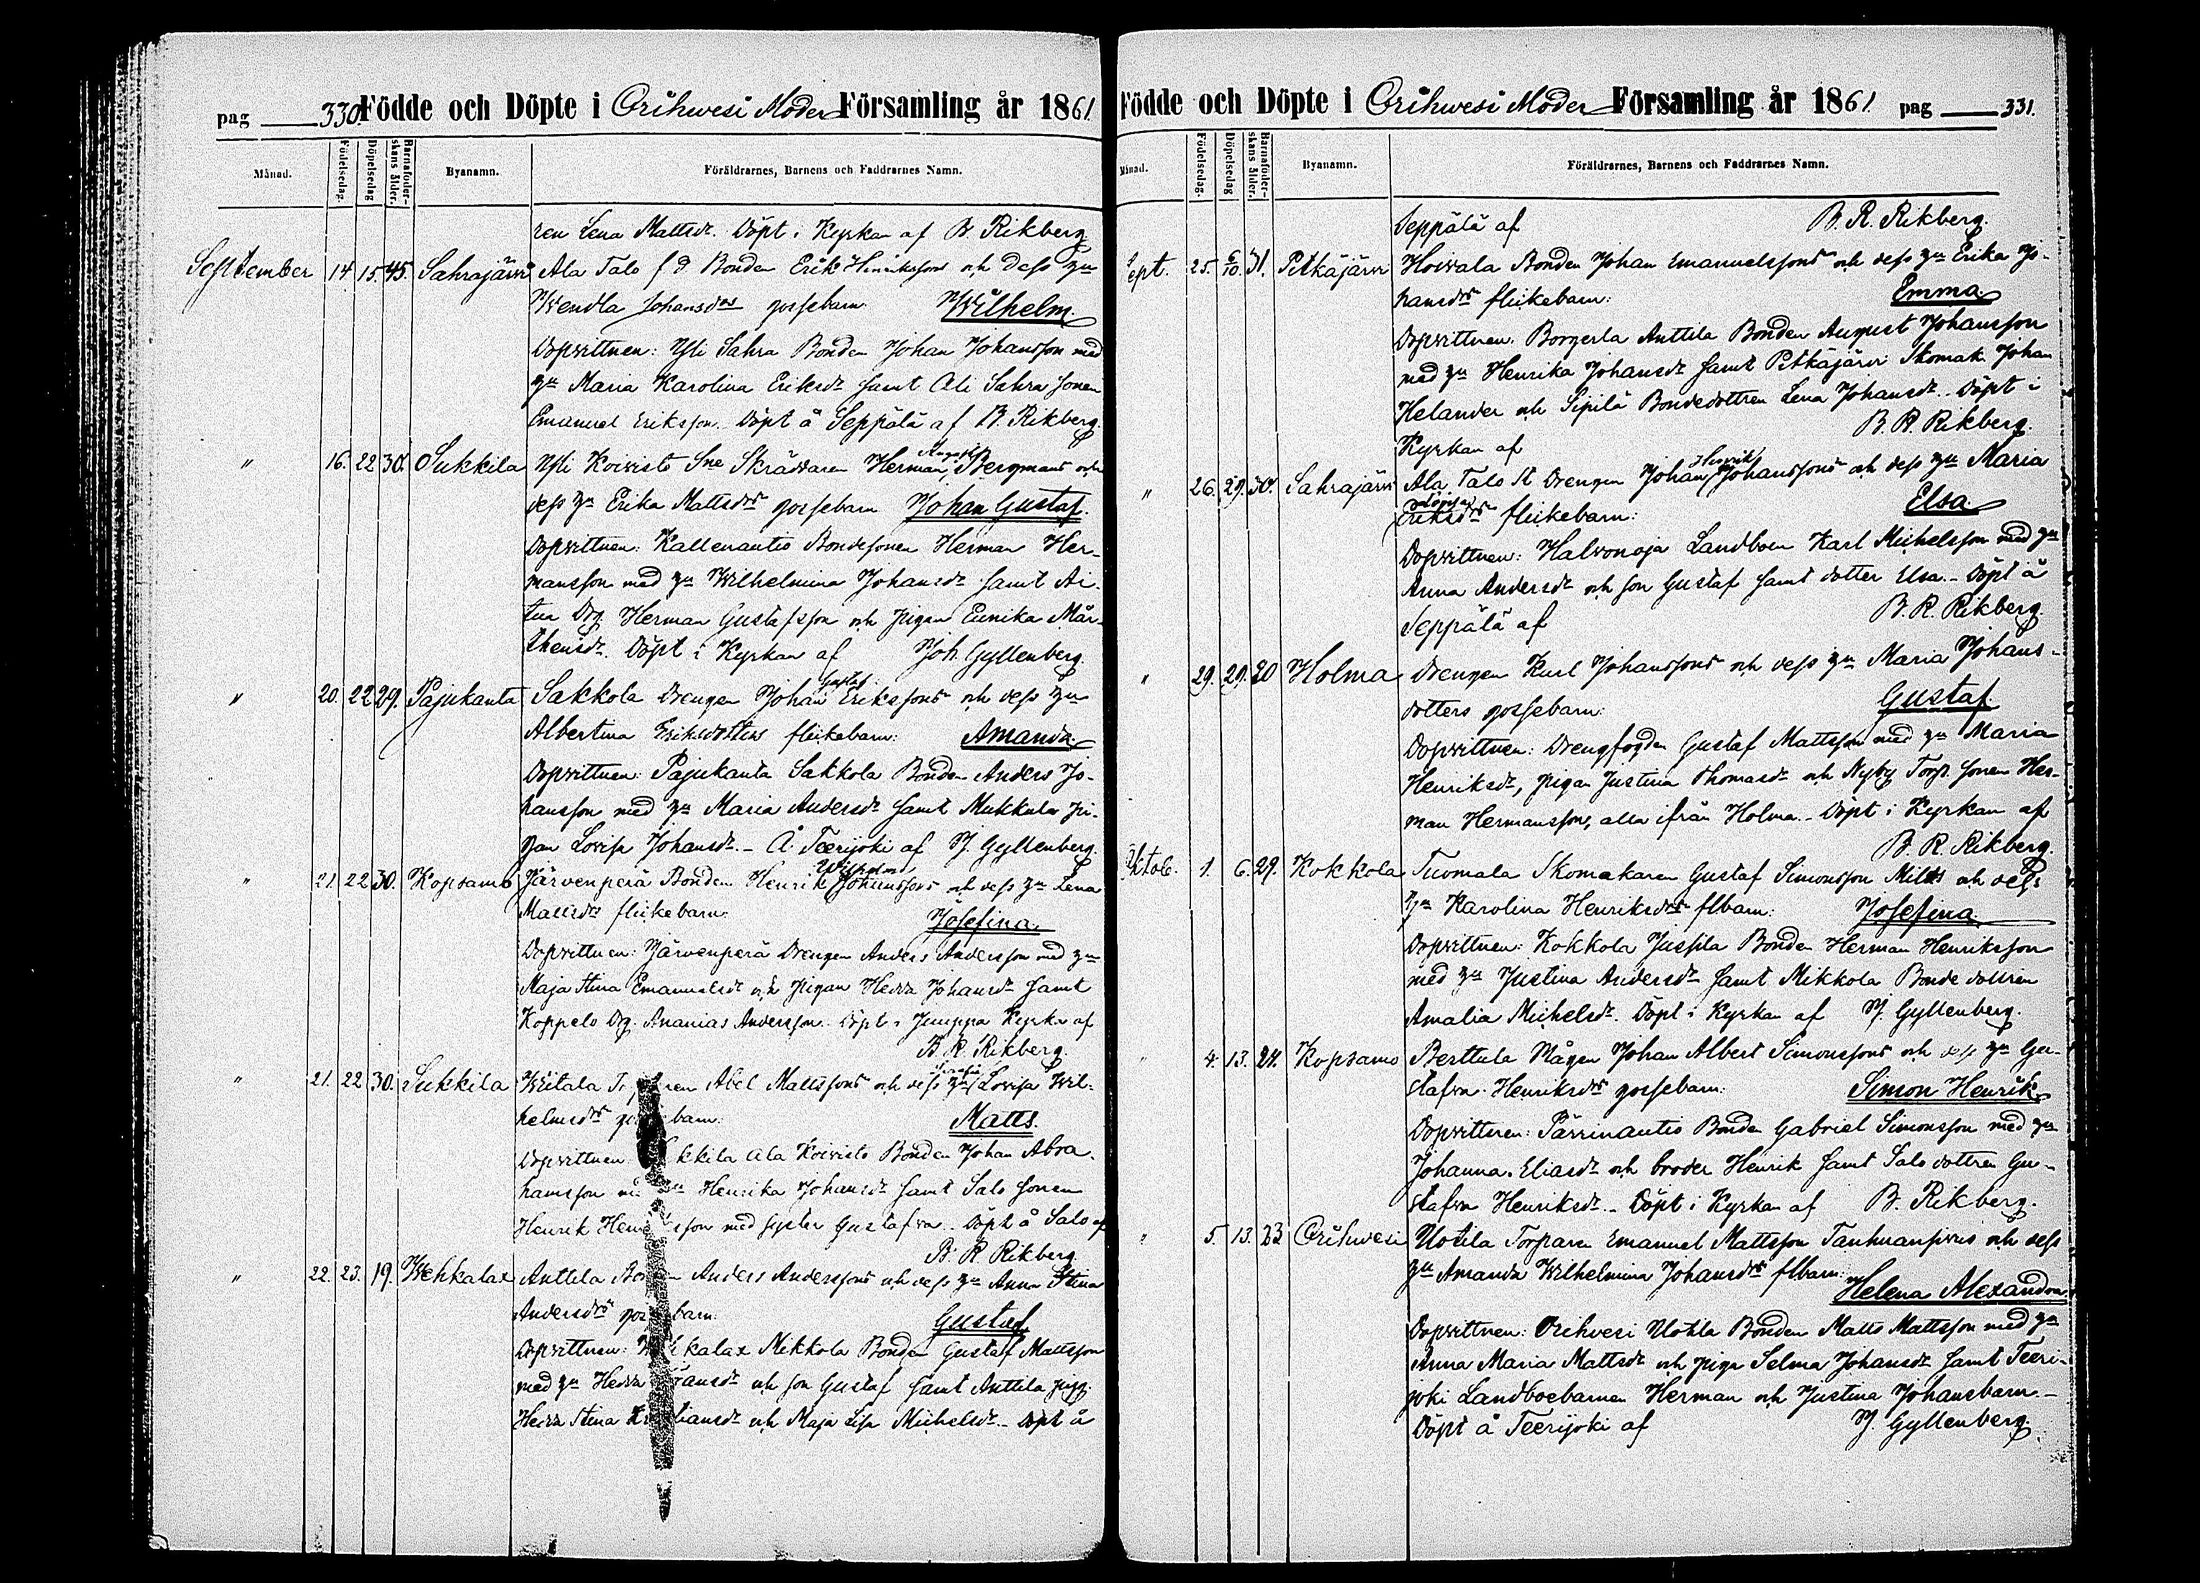 pag 330. Födde och Döpte i Orihwesi Moder Församling år 1861
Månad. Födelsedag. Döpelsedag Barnaföder-skans ålder. Byanamn. Föräldrarnes, Barnens och Faddrarnes Namn.
ren Lena Mattsdr. Döpt i Kyrkan af B. Rikberg.
September 14. 15. 45. Sahrajärvi Ala Talo f d Bonden Erik Henrikssons och dess hu
Wendla Johansdrs gossebarn Wilhelm.
Dopvittnen: Yli Sahra Bonden Johan Johansson med
hu Maria Karolina Eriksdr samt Ali Sahra sonen
Emanuel Eriksson. Döpt å Seppälä af B. Rikberg.
" 16. 22 30. Sukkila Yli Koivisto Sne Skräddaren Herman August Bergmans och
dess hu Erika Mattsdrs gossebarn Johan Gustaf.
Dopvittnen: Kallenautio Bondesonen Herman Her-
mansson med hu Wilhelmina Johansdr samt Ai-
tua Drg. Herman Gustafsson och pigan Eunika Mår-
thensdr. Döpt i Kyrkan af Joh. Gyllenberg.
" 20. 22 29. Pajukanta Sakkola Drengen Johan Gustaf Erikssons och dess hu
Albertina Eriksdotters flickebarn: Amanda.
Dopvittnen: Pajukanta Sakkola Bonden Anders Jo-
hansson med hu Maria Andersdr samt Mukkula pi-
gan Lovisa Johansdr. - Å Teerijoki af J. Gyllenberg.
" 21. 22 30. Kopsamo Järvenperä Bonden Henrik Wilhelm Johanssons och dess hu Lena
Mattsdrs flickebarn: Josefina.
Dopvittnen: Järvenperä Drengen Anders Andersson med hu
Maja Stina Emanuelsdr och pigan Hedda Johansdr samt
Koppelo Drg. Ananias Andersson. Döpt i Kyrka af
B. R. Rikberg.
" 21. 22 30. Sukkila Abel Mattssons och dess hu Lovisa Wil-
helmsdrs barn: Matts.
Dopvittnen kkila Ala Koivisto Bonden Johan Abra-
hamsson hu Henrika Johansdr samt Salo sonen
Henrik Henriksson med syster Gustafva. Döpt å Salo af
B. R. Rikberg.
" 22. 23. 19. Wehkalax Anttila Bonden Anders Anderssons och dess hu Anna Stina
Andersdrs gossebarn: Gustaf
Dopvittnen: Wehkalax Mikkola Bonden Gustaf Mattsson
med hu Hedda och son Gustaf samt Anttila pig.
Hedda Stina och Maja Lisa Michelsdr. Döpt å
Födde och Döpte i Orihwesi Moder Församling år 1861 pag 331.
Månad. Födelsedag. Döpelsedag Barnaföder-skans ålder. Byanamn. Föräldrarnes, Barnens och Faddrarnes Namn.
Seppälä af B. R. Rikberg.
Sept. 25. 6/10. 31. Pitkäjärvi Hoivala Bonden Johan Emanuelssons och dess hu Erika Jo-
hansdrs flickebarn: Emma
Dopvittnen. Borgerla Anttila Bonden August Johansson
med hu Henrika Johansdr samt Pitkäjärvi Skomak. Johan
Helander och Sipilä Bondedottren Lena Johansdr. Döpt i
Kyrkan af B. R. Rikberg.
" 26. 29. 30. Sahrajärvi Ala Talo St Drengen Johan Henrik Johanssons och dess hu Maria
Lovisa Eriksdrs flickebarn: Elsa
Dopvittnen: Halvonoja Landboen Karl Michelsson med hu
Anna Andersdr och son Gustaf samt dotter Elsa. - Döpt å
Seppälä af B. R. Rikberg.
" 29. 29. 20 Holma Drengen Karl Johanssons och dess hu Maria Johans-
dotters gossebarn: Gustaf.
Dopvittnen: Drengfogden Gustaf Mattsson med hu Maria
Henriksdr, pigan Justina Thomasdr och Nyby Torp. sonen Her-
man Hermansson, alla ifrån Holma. - Döpt i Kyrkan af
B. R. Rikberg.
Oktob. 1. 6. 29. Kokkola Tuomala Skomakaren Gustaf Simonsson och dess
hu Karolina Henriksdrs flbarn: Josefina.
Dopvittnen: Kokkola Jussila Bonden Herman Henriksson
med hu Justina Andersdr samt Mikkola Bonde dottren
Amalia Michelsdr. Döpt i Kyrkan af J. Gyllenberg.
" 4. 13. 24. Kopsamo Berttula Mågen Johan Albert Simonssons och dess hu Gu-
stafva Henriksdrs gossebarn: Simon Henrik.
Dopvittnen: Pärrinautio Bonden Gabriel Simonsson med hu
Johanna Eliasdr och broder Henrik samt Salo dottren Gu-
stafva Henriksdr. - Döpt i Kyrkan af B. Rikberg.
" 5. 13. 23 Orihwesi Uotila Torparen Emanuel Mattsson och dess
hu Amanda Wilhelmina Johansdrs flbarn: Helena Alexandra
Dopvittnen: Orihvesi Uotila Bonden Matts Mattsson med hu
Anna Maria Mattsdr och piga Selma Johansdr samt Teeri-
joki Landboebarnen Herman och Justina Johansbarn. -
Döpt å Teerijoki af J. Gyllenberg.